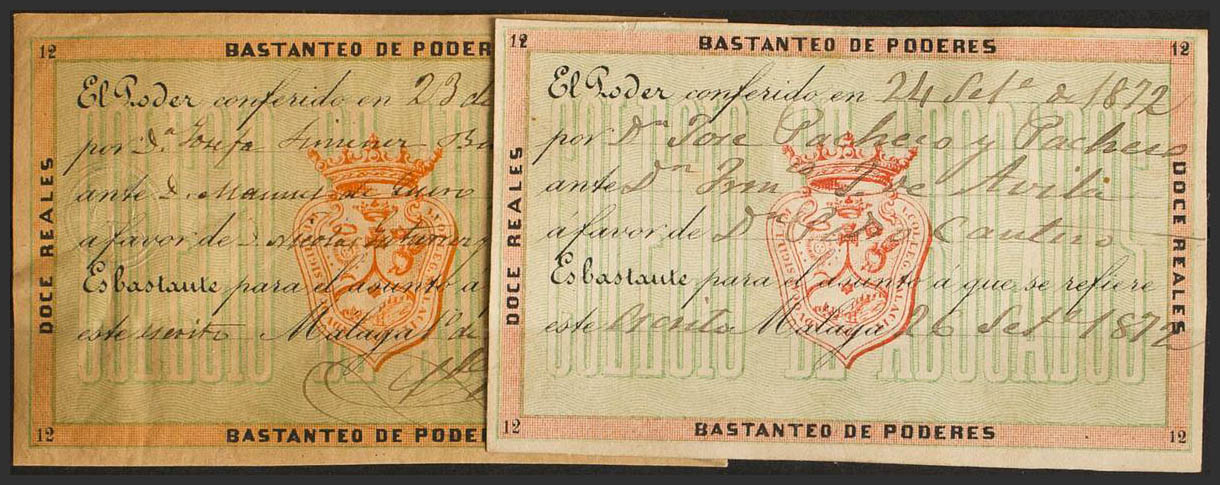 12
BASTANTEO DE PODER
DOCE REALES
El Poder conferido en 23 de
por D.ª Josefa Jimenez
ante D. Manuel
á favor de D. Nicolas
Es bastante para el asunto á
este escrito Malaga
COLEGIO
12
BASTANTEO DE PODER
12
BASTANTEO DE PODERES
12
DOCE REALES
El Poder conferido en 24 Setᵉ de 1872
por Dⁿ José Pacheco y Pacheco
ante Dⁿ Franᶜᵒ José Avila
á favor de Dⁿ Pedro Cantero
Es bastante para el asunto á que se refiere
este Escrito Malaga 26 Setᵉ 1872
DOCE REALES
COLEGIO DE ABOGADOS
12
BASTANTEO DE PODERES
12